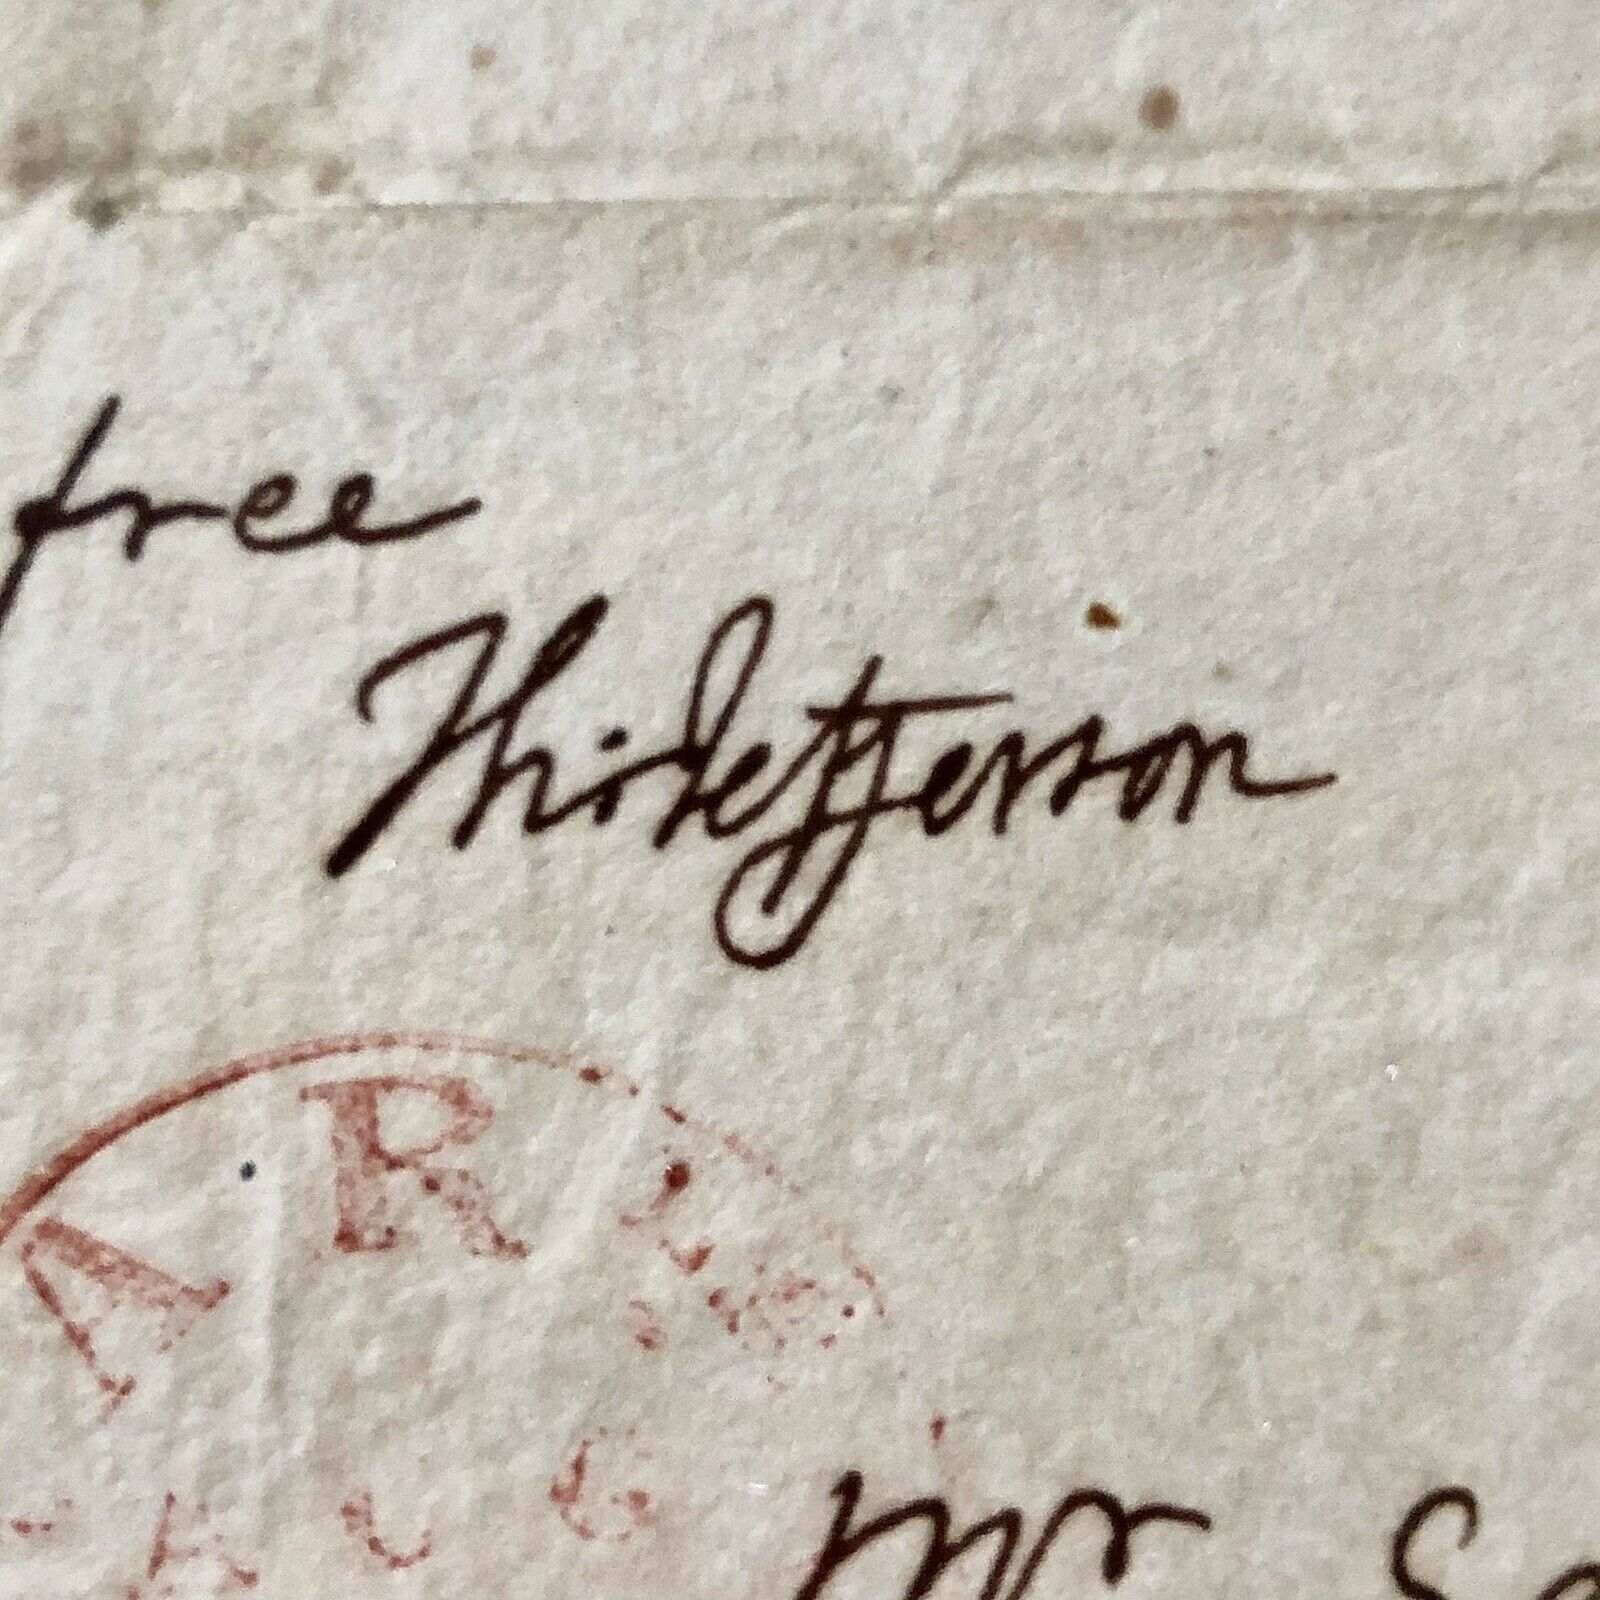 free
Th:Jefferson
AR
AUG
Mr